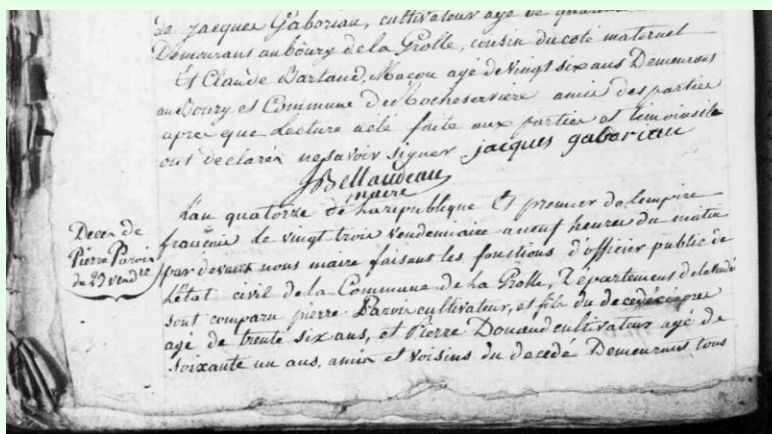 de jacques Gaboriau, cultivateur agé de
Demeurans au bourg de la Grolle, cousin du coté maternel
Et Claude Bartaud, Maçon agé de vingt six ans Demeurans
au Bourg et Commune de Rocheserviere amis des partie
apre que Lecture a été faite aux partie et temoins ils
ont declarés ne savoir signer jacques gaboriau
JBellaudeau
maire
Decex de
Pierre Parois
du 23 vendre
L'an quatorze de la republique Et premier de l'empire
français le vingt trois vendemiaire a neuf heures du matin
par devant nous maire faisant les fonctions d'officier public de
L'état civil de la Commune de la Grolle, Département de la
sont comparu pierre Parois cultivateur, et fils du decedé
agé de trente six ans, et Pierre Douaud cultivateur agé de
soixante un ans, amis et voisins du decedé Demeurans tous